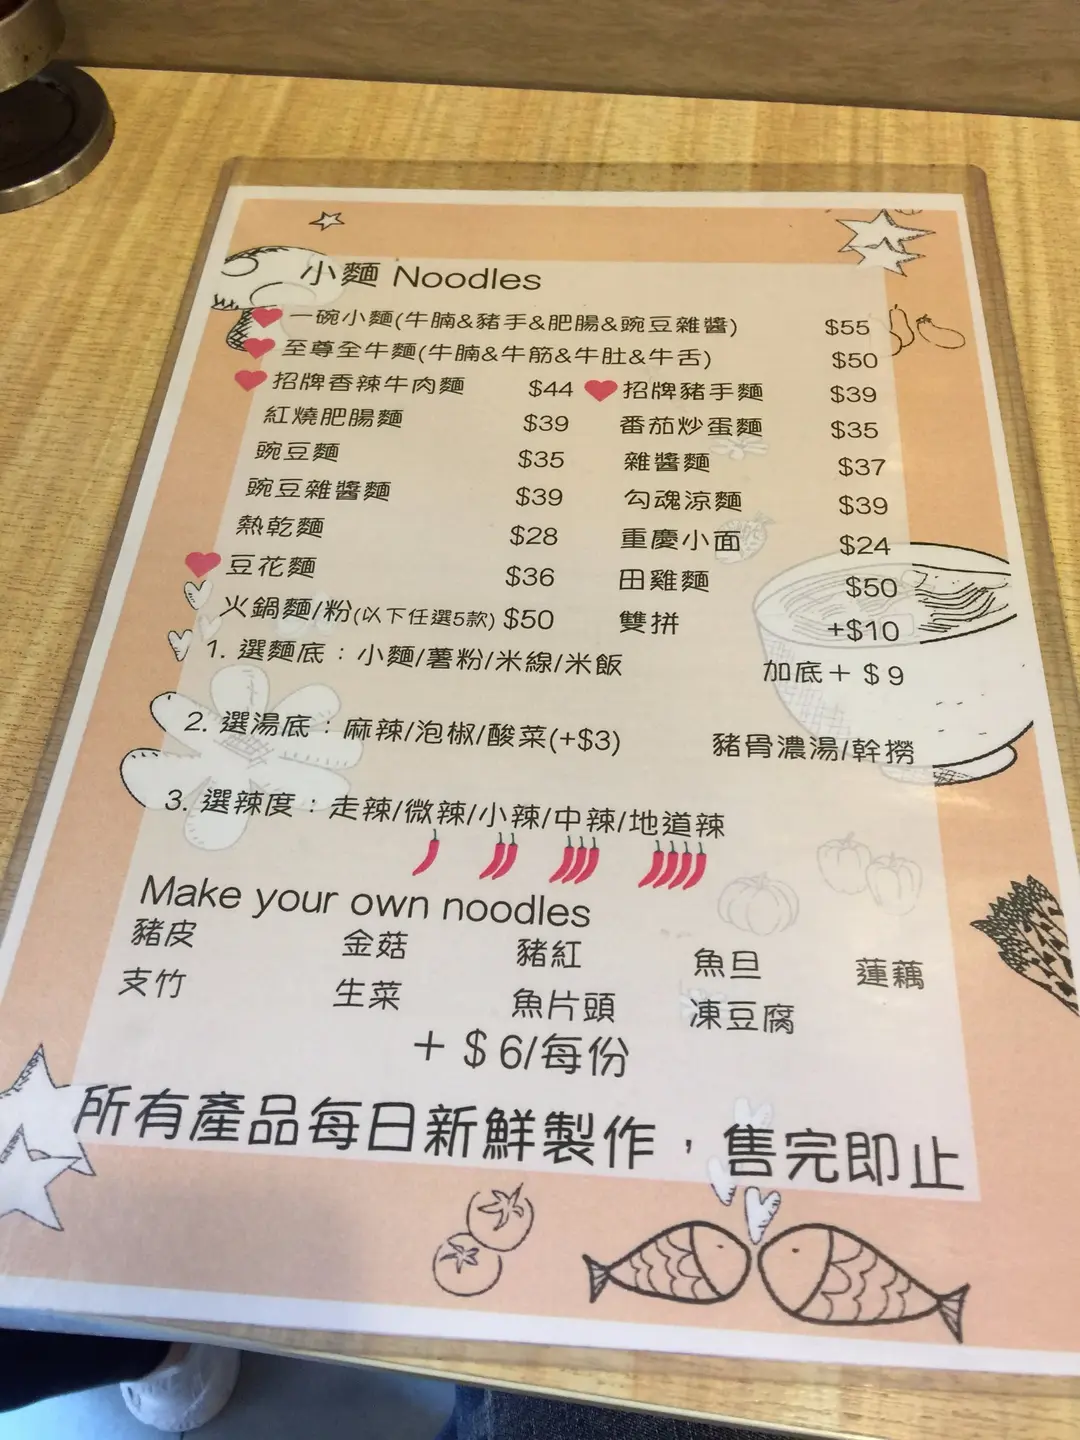 小麵 Noodles
一碗小麵(牛腩&豬手&肥腸&豌豆雜醬) $55
至尊全牛麵(牛腩&牛筋&牛肚&牛舌) $50
招牌香辣牛肉麵 $44 招牌豬手麵 $39
紅燒肥腸麵 $39 番茄炒蛋麵 $35
豌豆麵 $35 雜醬麵 $37
豌豆雜醬麵 $39 勾魂涼麵 $39
熱乾麵 $28 重慶小面 $24
豆花麵 $36 田雞麵 $50
火鍋麵/粉(以下任選5款) $50 雙拼 +$10
1. 選麵底：小麵/薯粉/米線/米飯 加底+ $9
2. 選湯底：麻辣/泡椒/酸菜(+$3) 豬骨濃湯/幹撈
3. 選辣度：走辣/微辣/小辣/中辣/地道辣
Make your own noodles
豬皮 金菇 豬紅 魚旦 蓮藕
支竹 生菜 魚片頭 凍豆腐
+ $6/每份
所有產品每日新鮮製作，售完即止